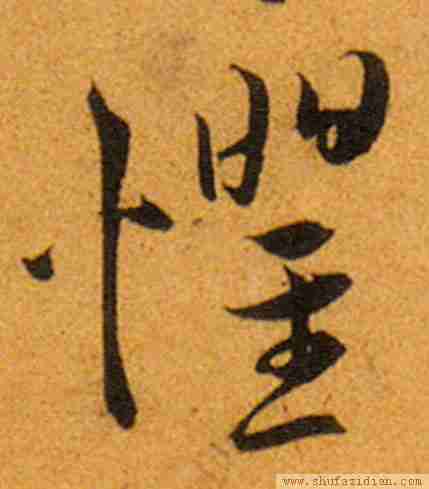 懼
www.shufazidian.com